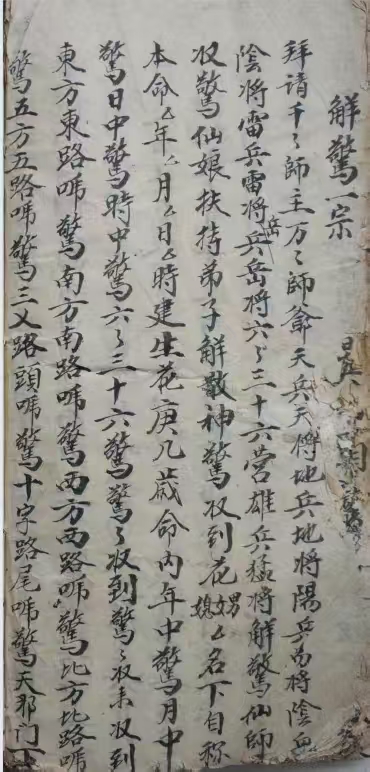 解驚一宗
拜請千〻師主万〻師爺天兵天將地兵地將陽兵陽將陰兵
陰將雷兵雷將岳兵岳將六〻三十六营雄兵猛將解驚仙師
収驚仙娘扶持弟子解散神驚収到花男媳厶名下自称
本命厶年厶月厶日厶時建生花庚几歲命内年中驚月中
驚日中驚時中驚六〻三十六驚驚〻収到驚〻収未収到
東方東路唬驚南方南路唬驚西方西路唬驚北方北路唬
驚五方五路唬驚三义路頭唬驚十字路尾唬驚天那門下